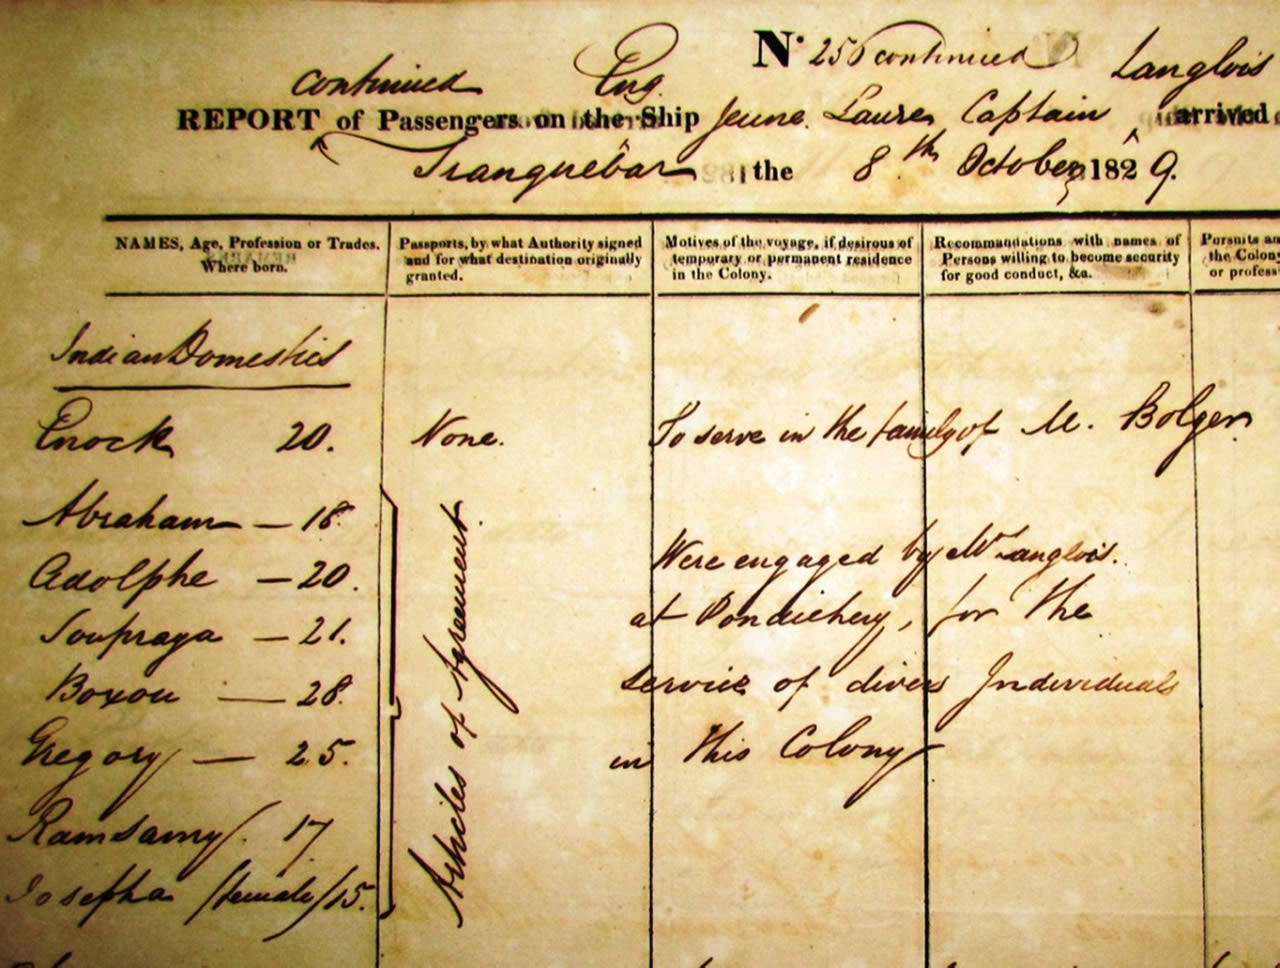 Nº 250 continued
continued Eng. Langlois
REPORT of Passengers on the Ship Jeune Laure Captain arrived
Tranquebar the 8th October 1829.
NAMES, Age, Profession or Trades. Where born.
Passports, by what Authority signed and for what destination originally granted.
Motives of the voyage, if desirous of temporary or permanent residence in the Colony.
Recommandations with names of Persons willing to become security for good conduct, &a.
the Colony
or profess
Indian Domestics
Enock 20. None. To serve in the family of M. Bolger
Abraham — 18
Adolphe — 20.
Soupraya — 21.
Boxou — 28.
Gregory — 25.
Ramsamy 17
Josepha /female/ 15.
Articles of Agreement
Were engaged by Mr Langlois.
at Pondichery, for the
service of divers Individuals
in this Colony